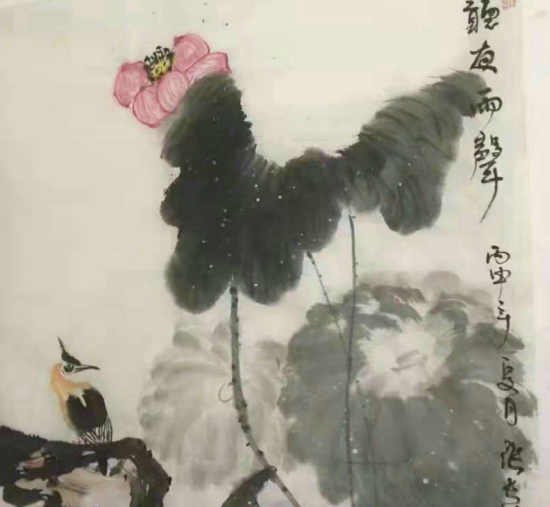 聽夜雨聲
丙申年夏月張